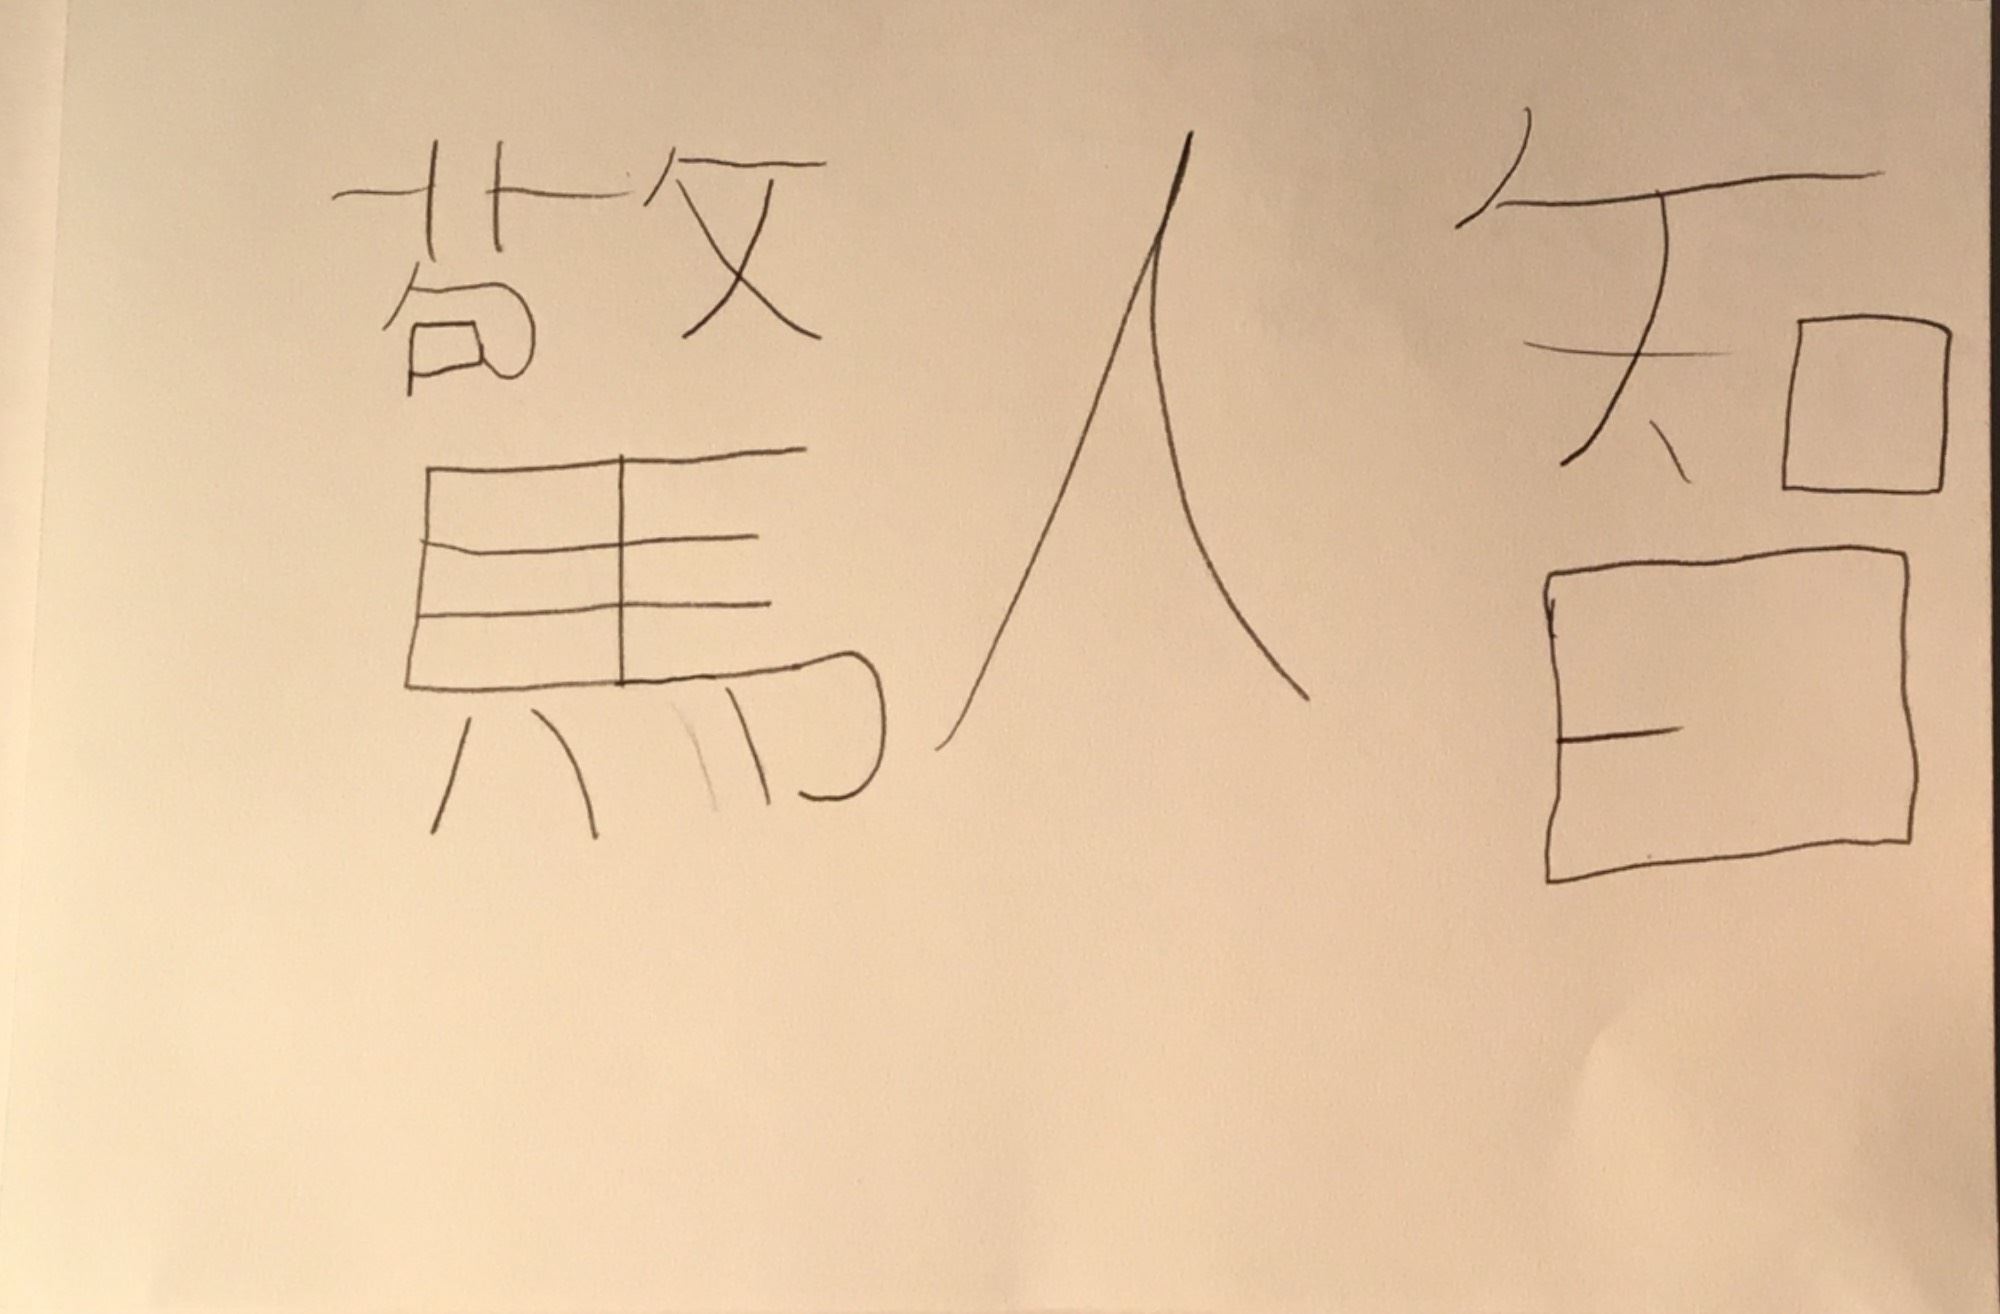 驚人智